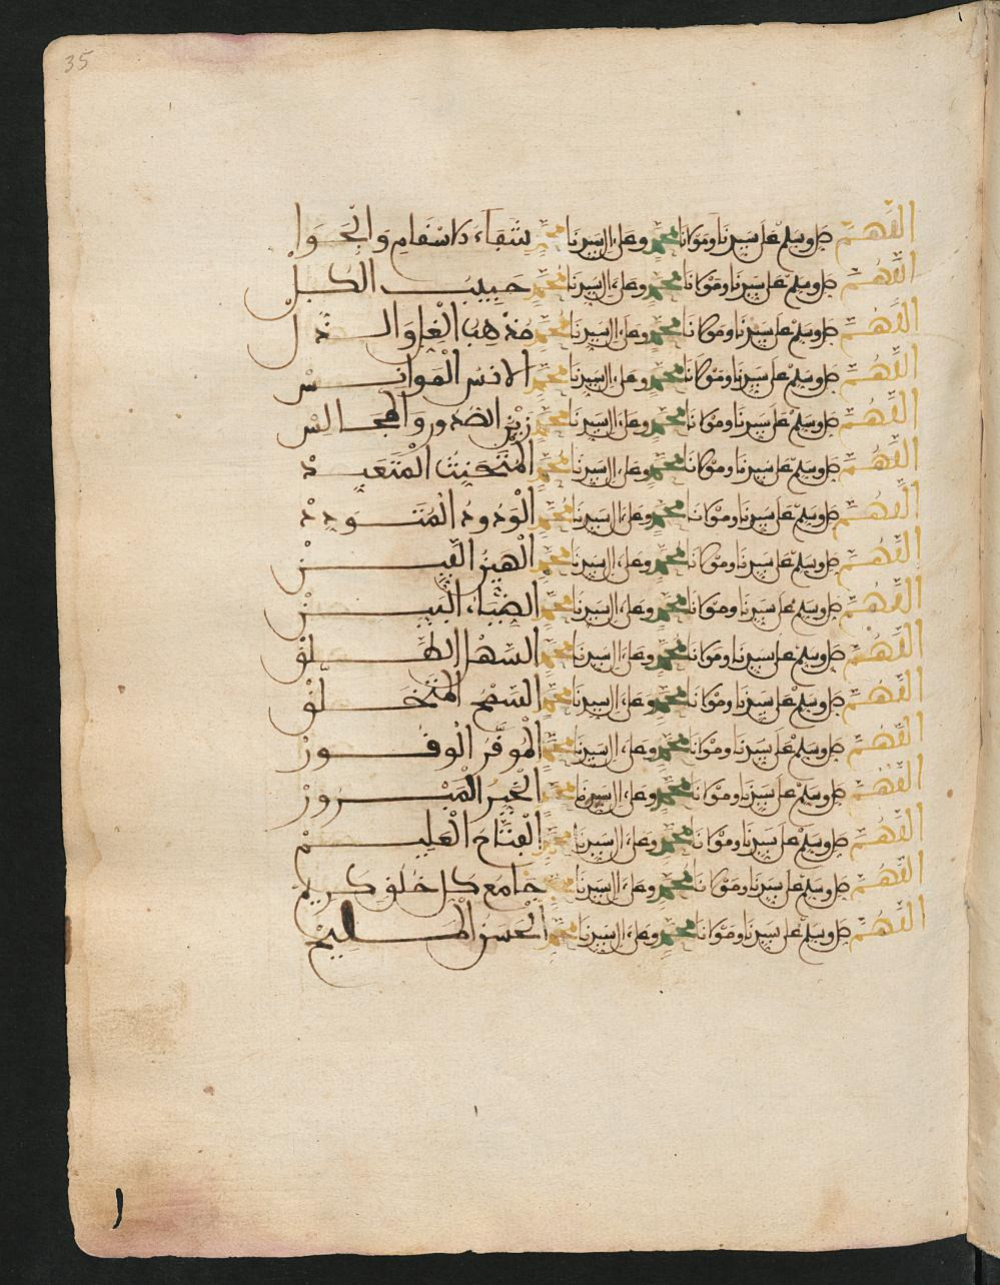 35
اللهم صل وسلم على سيدنا ومولانا محمد وعلى ال سيدنا محمد شفاء الاسقام والجوا
اللهم صل وسلم على سيدنا ومولانا محمد وعلى ال سيدنا محمد حبيب الكل
اللهم صل وسلم على سيدنا ومولانا محمد وعلى ال سيدنا محمد مذهب الغل والذل
اللهم صل وسلم على سيدنا ومولانا محمد وعلى ال سيدنا محمد الانس الموانس
اللهم صل وسلم على سيدنا ومولانا محمد وعلى ال سيدنا محمد زين الصدور والمجالس
اللهم صل وسلم على سيدنا ومولانا محمد وعلى ال سيدنا محمد المتحنث المتعبد
اللهم صل وسلم على سيدنا ومولانا محمد وعلى ال سيدنا محمد الودود المتودد
اللهم صل وسلم على سيدنا ومولانا محمد وعلى ال سيدنا محمد الهين اللين
اللهم صل وسلم على سيدنا ومولانا محمد وعلى ال سيدنا محمد الضياء البين
اللهم صل وسلم على سيدنا ومولانا محمد وعلى ال سيدنا محمد السهل الطلق
اللهم صل وسلم على سيدنا ومولانا محمد وعلى ال سيدنا محمد السمح المتخلق
اللهم صل وسلم على سيدنا ومولانا محمد وعلى ال سيدنا محمد الموقر الوفور
اللهم صل وسلم على سيدنا ومولانا محمد وعلى ال سيدنا محمد الخير المبرور
اللهم صل وسلم على سيدنا ومولانا محمد وعلى ال سيدنا محمد الفتاح العليم
اللهم صل وسلم على سيدنا ومولانا محمد وعلى ال سيدنا محمد جامع كل خلق كريم
اللهم صل وسلم على سيدنا ومولانا محمد وعلى ال سيدنا محمد الحسن المليح